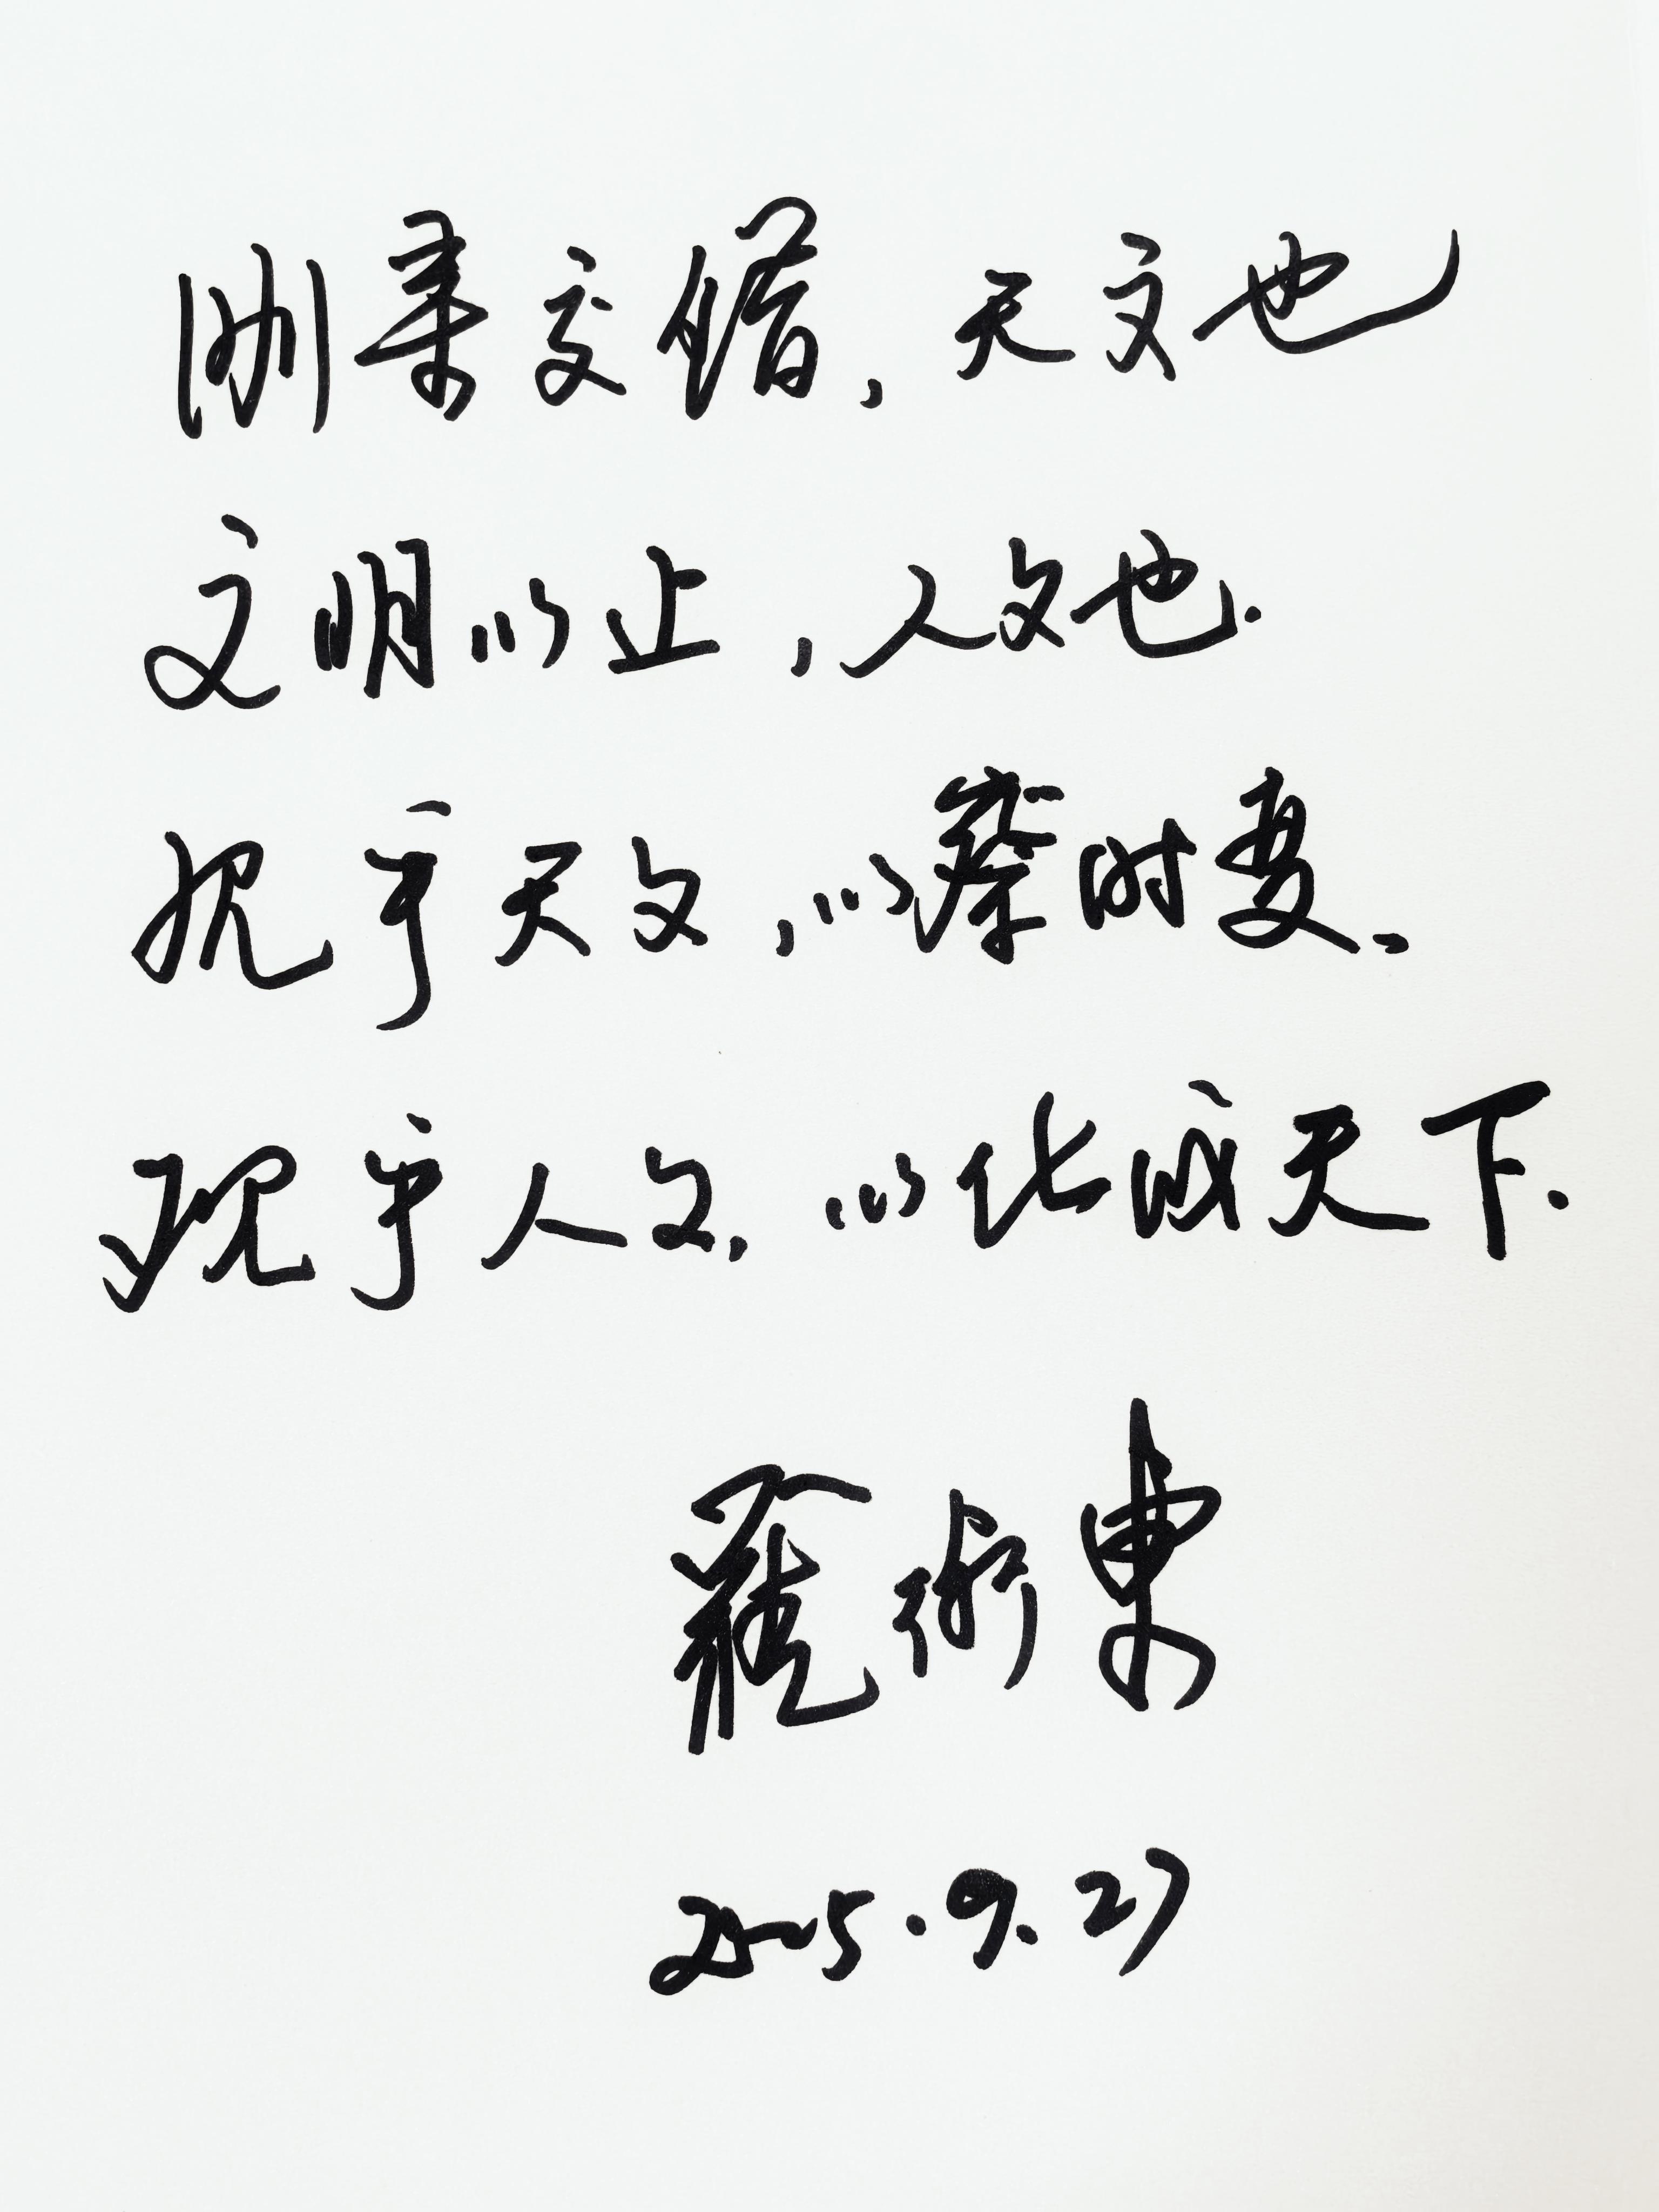 刚柔交错，天文也
文明以止，人文也.
观乎天文，以察时变.
观乎人文，以化成天下.
術東
2005.9.27